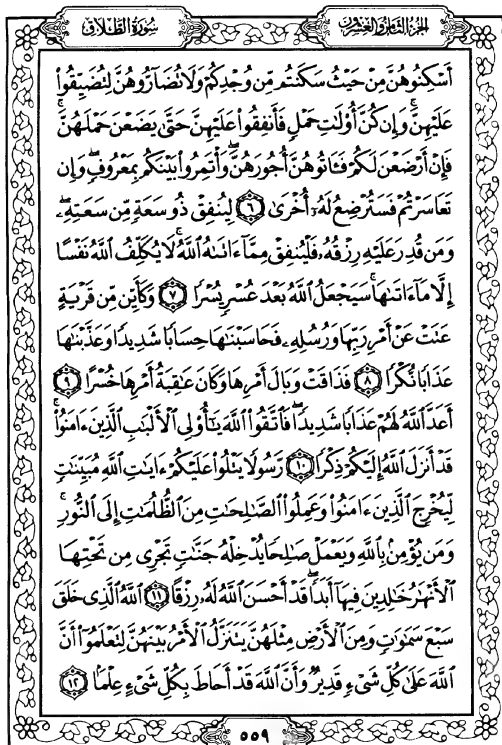 سُورَةُ الطَّلَاقِ
الجزء الثامن والعشرون
أَسْكِنُوهُنَّ مِنْ حَيْثُ سَكَنتُم مِّن وُجْدِكُمْ وَلَا تُضَآرُّوهُنَّ لِتُضَيِّقُوا۟
عَلَيْهِنَّ ۚ وَإِن كُنَّ أُو۟لَـٰتِ حَمْلٍ فَأَنفِقُوا۟ عَلَيْهِنَّ حَتَّىٰ يَضَعْنَ حَمْلَهُنَّ ۚ
فَإِنْ أَرْضَعْنَ لَكُمْ فَـَٔاتُوهُنَّ أُجُورَهُنَّ ۖ وَأْتَمِرُوا۟ بَيْنَكُم بِمَعْرُوفٍ ۖ وَإِن
تَعَاسَرْتُمْ فَسَتُرْضِعُ لَهُۥٓ أُخْرَىٰ ٦ لِيُنفِقْ ذُو سَعَةٍ مِّن سَعَتِهِۦ ۖ
وَمَن قُدِرَ عَلَيْهِ رِزْقُهُۥ فَلْيُنفِقْ مِمَّآ ءَاتَىٰهُ ٱللَّهُ ۚ لَا يُكَلِّفُ ٱللَّهُ نَفْسًا
إِلَّا مَآ ءَاتَىٰهَا ۚ سَيَجْعَلُ ٱللَّهُ بَعْدَ عُسْرٍ يُسْرًا ٧ وَكَأَيِّن مِّن قَرْيَةٍ
عَتَتْ عَنْ أَمْرِ رَبِّهَا وَرُسُلِهِۦ فَحَاسَبْنَـٰهَا حِسَابًا شَدِيدًا وَعَذَّبْنَـٰهَا
عَذَابًا نُّكْرًا ٨ فَذَاقَتْ وَبَالَ أَمْرِهَا وَكَانَ عَـٰقِبَةُ أَمْرِهَا خُسْرًا ٩
أَعَدَّ ٱللَّهُ لَهُمْ عَذَابًا شَدِيدًا ۖ فَٱتَّقُوا۟ ٱللَّهَ يَـٰٓأُو۟لِى ٱلْأَلْبَـٰبِ ٱلَّذِينَ ءَامَنُوا۟ ۚ
قَدْ أَنزَلَ ٱللَّهُ إِلَيْكُمْ ذِكْرًا ١٠ رَّسُولًا يَتْلُوا۟ عَلَيْكُمْ ءَايَـٰتِ ٱللَّهِ مُبَيِّنَـٰتٍ
لِّيُخْرِجَ ٱلَّذِينَ ءَامَنُوا۟ وَعَمِلُوا۟ ٱلصَّـٰلِحَـٰتِ مِنَ ٱلظُّلُمَـٰتِ إِلَى ٱلنُّورِ ۚ
وَمَن يُؤْمِنۢ بِٱللَّهِ وَيَعْمَلْ صَـٰلِحًا يُدْخِلْهُ جَنَّـٰتٍ تَجْرِى مِن تَحْتِهَا
ٱلْأَنْهَـٰرُ خَـٰلِدِينَ فِيهَآ أَبَدًا ۖ قَدْ أَحْسَنَ ٱللَّهُ لَهُۥ رِزْقًا ١١ ٱللَّهُ ٱلَّذِى خَلَقَ
سَبْعَ سَمَـٰوَٰتٍ وَمِنَ ٱلْأَرْضِ مِثْلَهُنَّ يَتَنَزَّلُ ٱلْأَمْرُ بَيْنَهُنَّ لِتَعْلَمُوٓا۟ أَنَّ
ٱللَّهَ عَلَىٰ كُلِّ شَىْءٍ قَدِيرٌ وَأَنَّ ٱللَّهَ قَدْ أَحَاطَ بِكُلِّ شَىْءٍ عِلْمًۢا ١٢
٥٥٩